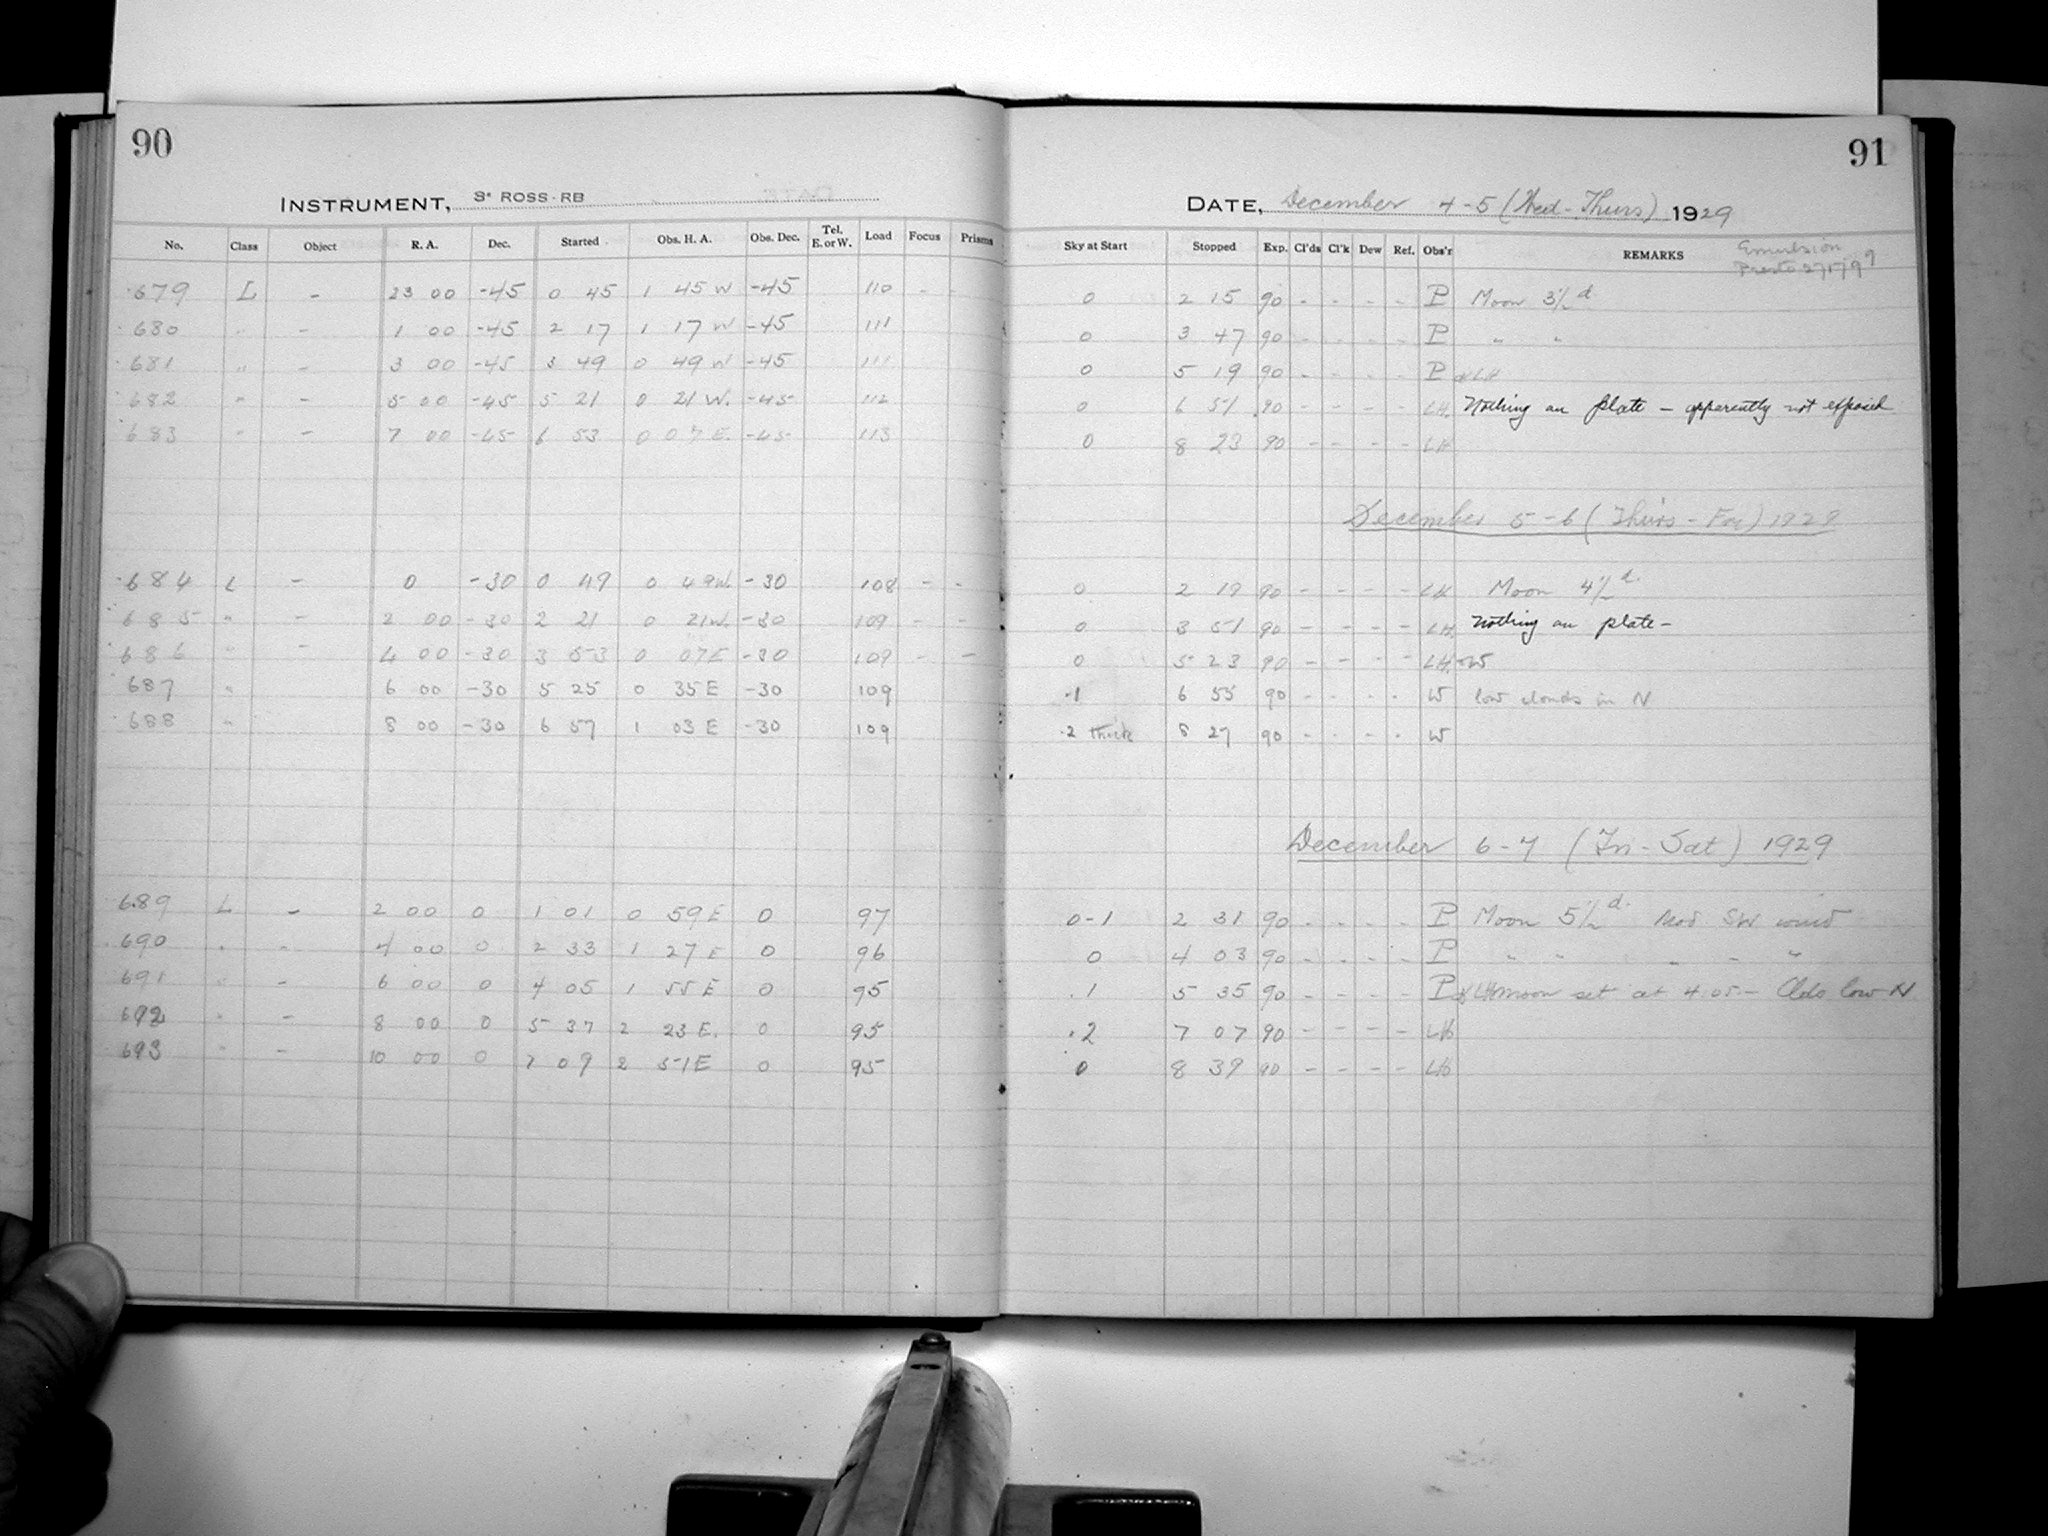 90
INSTRUMENT, 3" ROSS-RB
No. Class Object R. A. Dec. Started Obs. H. A. Obs. Dec. Tel. E. or W. Load Focus Prisms
679 L - 23 00 -45 0 45 1 45 W -45 110 - -
680 " - 1 00 -45 2 17 1 17 W -45 111
681 " - 3 00 -45 3 49 0 49 W -45 111
682 " - 5 00 -45 5 21 0 21 W. -45 112
683 " - 7 00 -45 6 53 0 07 E. -45 113
684 L - 0 -30 0 49 0 49 W. -30 108 - -
685 " - 2 00 -30 2 21 0 21 W. -30 109 - -
686 " - 4 00 -30 3 53 0 07 E -30 109 - -
687 " 6 00 -30 5 25 0 35 E -30 109
688 " 8 00 -30 6 57 1 03 E -30 109
689 L - 2 00 0 1 01 0 59 E 0 97
690 " " 4 00 0 2 33 1 27 E 0 96
691 " - 6 00 0 4 05 1 55 E 0 95
692 " - 8 00 0 5 37 2 23 E. 0 95
693 " - 10 00 0 7 09 2 51 E 0 95
91
DATE, December 4-5 (Wed-Thurs) 1929
Sky at Start Stopped Exp. Cl'ds Cl'k Dew Ref. Obs'r REMARKS Emulsion
0 2 15 90 - - - - P Moon 3½ d.
0 3 47 90 - - - - P " "
0 5 19 90 - - - - P & LH
0 6 51 90 - - - - LH. Nothing on plate - apparently not exposed
0 8 23 90 - - - - LH
December 5-6 (Thurs-Fri) 1929
0 2 19 90 - - - - LH Moon 4½ d.
0 3 51 90 - - - - LH. Nothing on plate -
0 5 23 90 - - - - LH. & W
.1 6 55 90 - - - - W low clouds in N
.2 thick 8 27 90 - - - - W
December 6-7 (Fri-Sat) 1929
0-1 2 31 90 - - - - P Moon 5½ d. Mod SW wind
0 4 03 90 - - - - P " " " " "
.1 5 35 90 - - - - P & LH moon set at 4.05 - Clds low N
.2 7 07 90 - - - - LH
0 8 39 90 - - - - LH